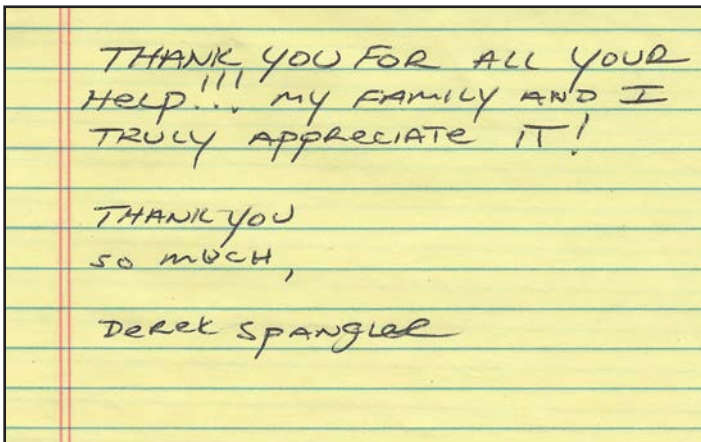 THANK YOU FOR ALL YOUR
HELP!!! MY FAMILY AND I
TRULY APPRECIATE IT!
THANK YOU
SO MUCH,
DEREK SPANGLER